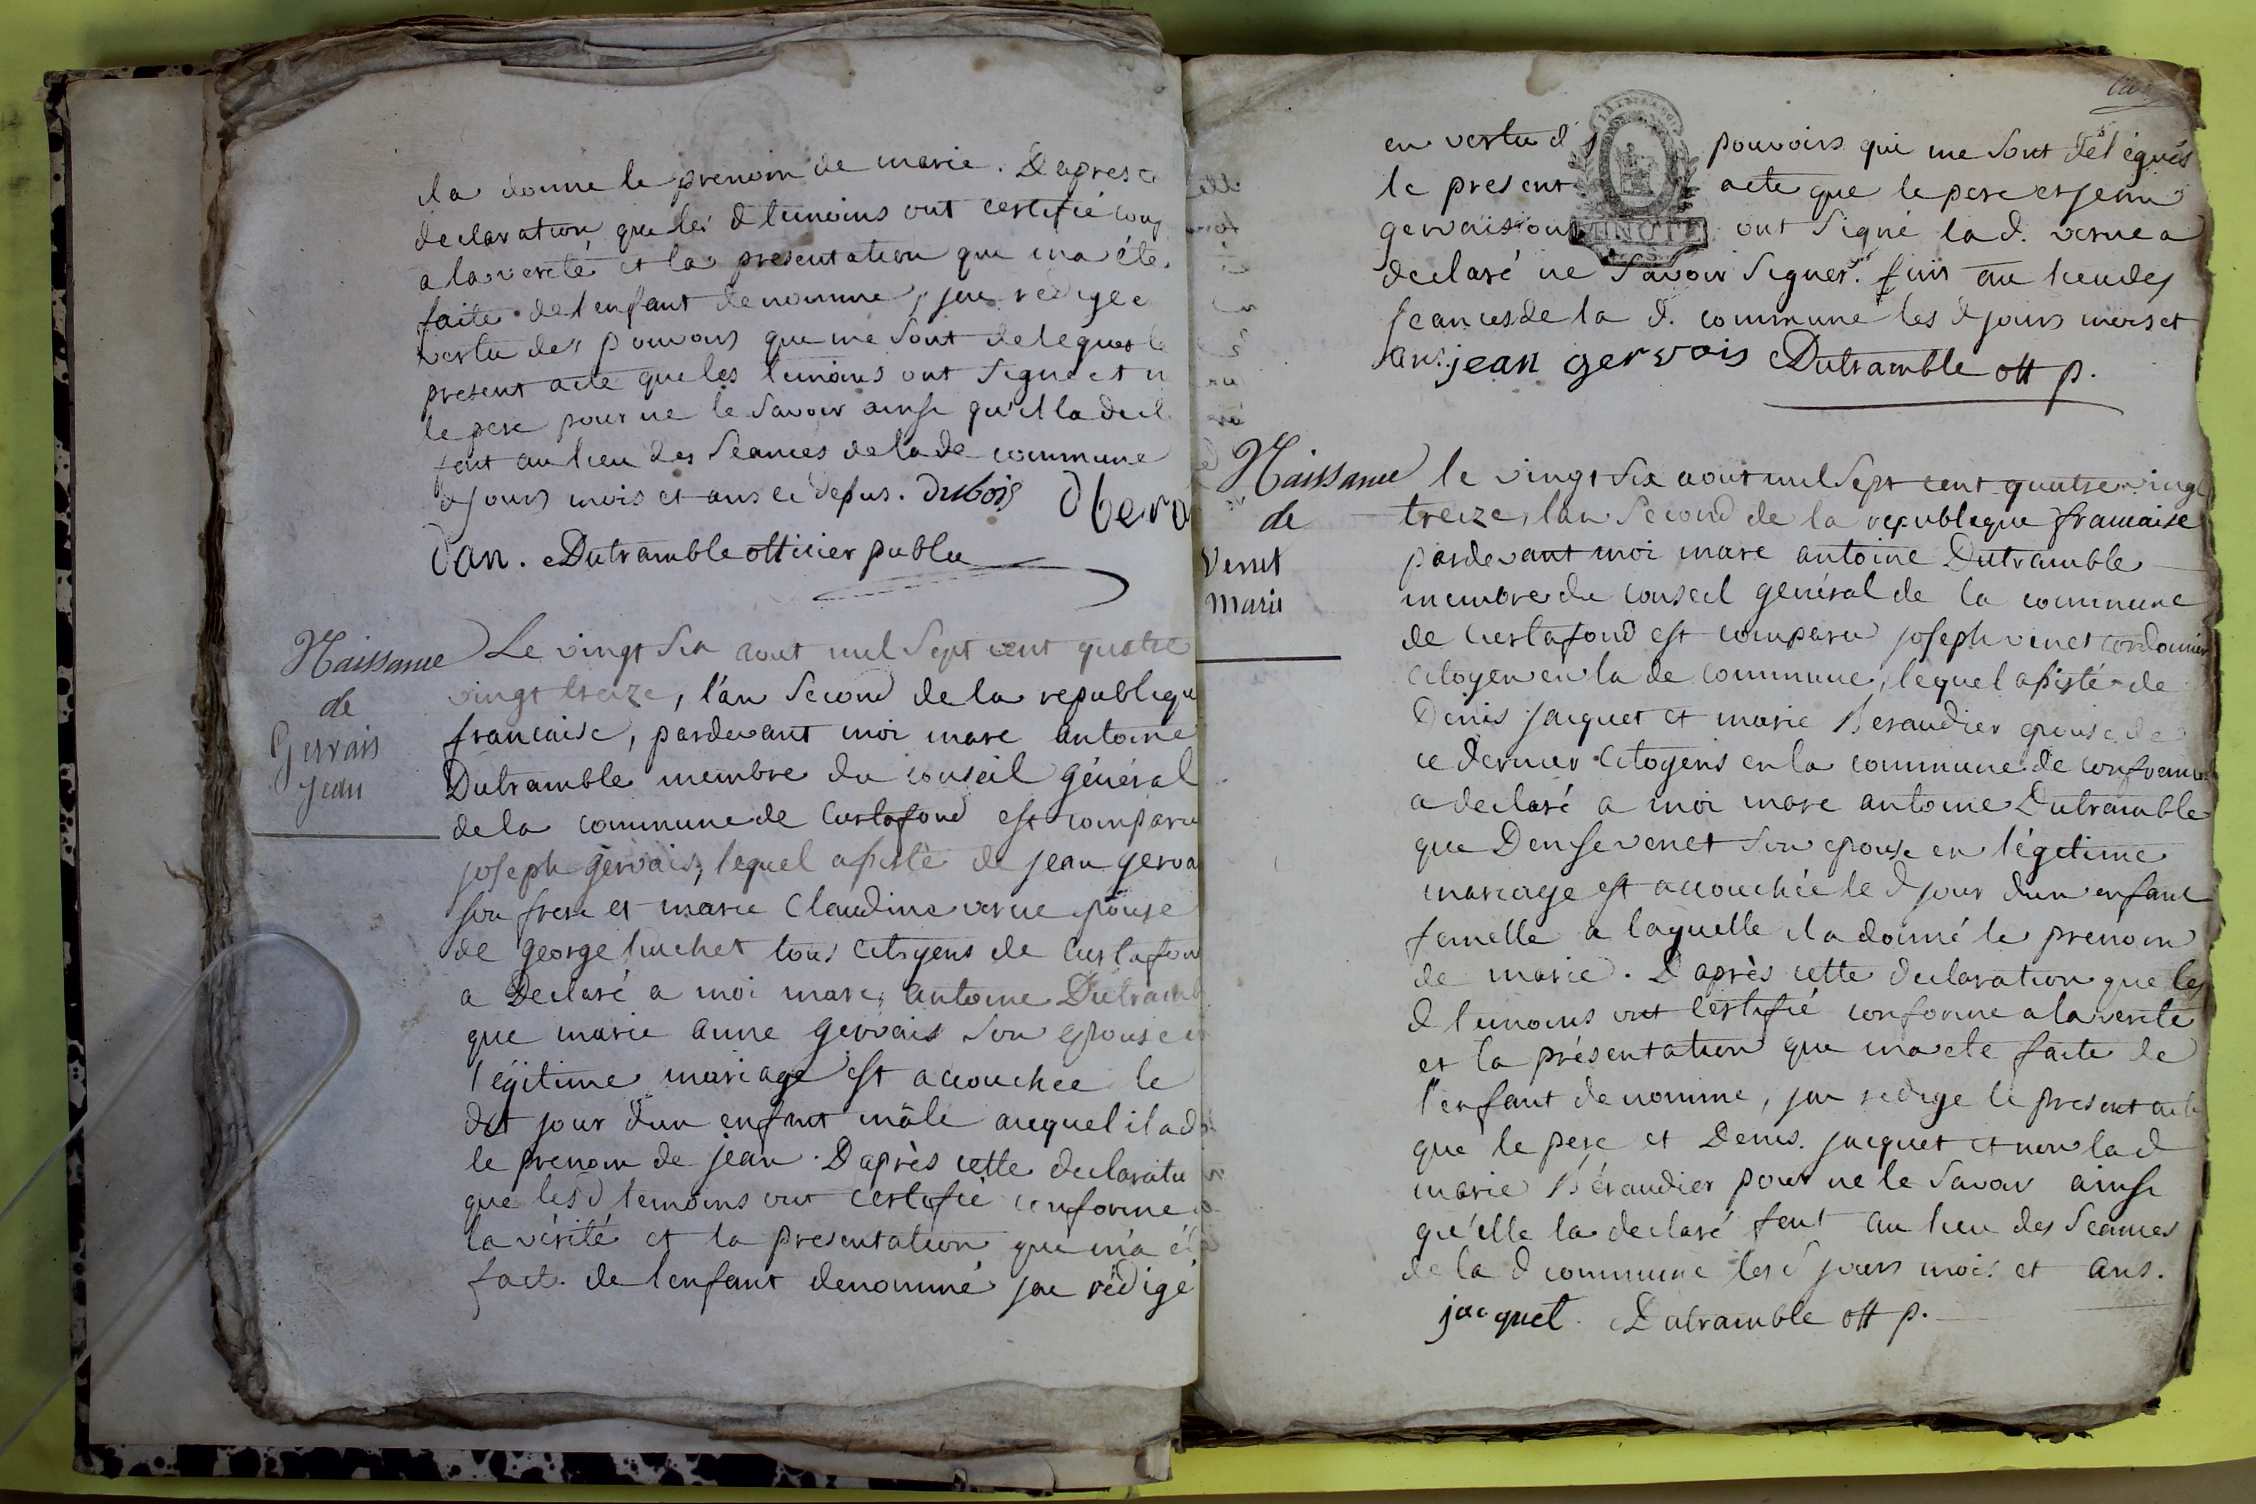 ila donne le prenom de marie. D'apres ce
declaration que les d temoins ont certifié conf
a la verité et la presentation que ma été
faite de l'enfant denommé, jai redigé e
vertu des pouvoirs que me sont delegués le
present acte que les temoins ont signé et n
le pere pour ne le savoir ainsi qu'il la decl
fait au lieu des seances de la de commune
d jours mois et ans ci depus. Dubois
Dan. Dutramble officier public
Naissance
de
Gervais
jean
Le vingt six aout mil sept cent quatre
vingt treize, l'an second de la republiqu
francaise, pardevant moi marc antoine
Dutramble membre du conseil général
de la commune de Curtafond est comparu
joseph gervais, lequel assisté de jean gerva
son frere et marie Claudine verne epouse
de george huchet tous citoyens de Curtafon
a Declaré a moi marc antoine Dutramb
que marie anne gervais son epouse e
légitime mariage est accouchee le
dit jour d'un enfant mâle auquel il a d
le prenom de jean. D'après cette declaratio
que les d temoins ont certifié conforme
la vérité et la presentation que m'a é
faite de l'enfant denommé jai rédigé
en vertu d s pouvoirs qui me sont délégués
le present acte que le pere et jean
gervais ont signé la d. verne a
declaré ne savoir signer. fait au lieu des
seances de la d. commune les d jours mois et
ans. jean gervais Dutramble off p.
Naissance
de
Venet
Marie
le vingt six aout mil sept cent quatre vingt
treize, l'an second de la republique francaise
pardevant moi marc antoine Dutramble
membre du conseil général de la commune
de Curtafond est comparu joseph venet cordonnier
citoyen en la de commune, lequel assisté de
Denis jacquet et marie Beraudier epouse de
ce dernier citoyens en la commune de confrancon
a declaré a moi marc antoine Dutramble
que Denise venet son epouse en légitime
mariage est accouchée le d jour d'un enfant
femelle a laquelle il a donné le prenom
de marie. D'après cette declaration que les
d temoins ont certifié conforme a la verité
et la présentation que m'a ete faite de
l'enfant denommé, jai redigé le present acte
que le pere et Denis jacquet et non la d
marie Béraudier pour ne le savoir ainsi
qu'elle la declaré fait au lieu des seances
de la d commune les d jours mois et ans.
jacquet. Dutramble off p.